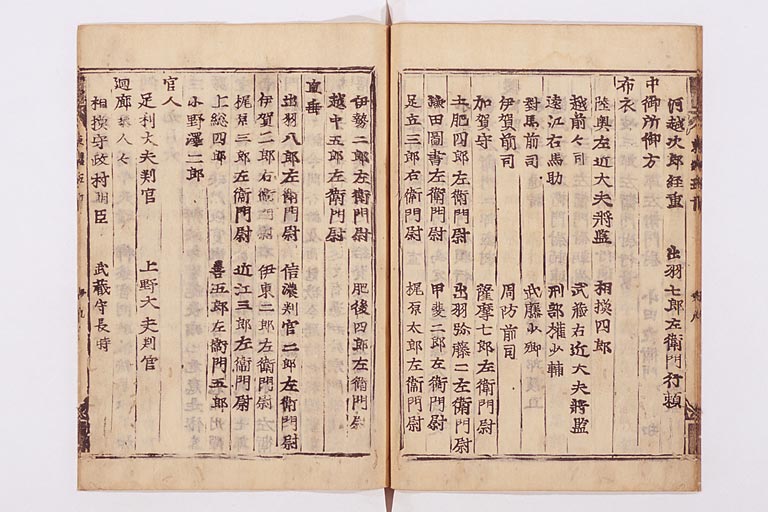 河越次郎経重　出羽七郎左衛門行頼
中御所御方
布衣
陸奥左近大夫将監　相摸四郎
越前々司　武蔵右近大夫将監
遠江右馬助　刑部権少輔
對馬前司　武藤少卿
伊賀前司　周防前司
加賀守　薩摩七郎左衛門尉
土肥四郎左衛門尉　出羽弥藤二左衛門尉
鎌田圖書左衛門尉　甲斐二郎左衛門尉
足立三郎右衛門尉　梶原太郎左衛門尉
伊勢二郎左衛門尉　肥後四郎左衛門尉
越中五郎左衛門尉
直垂
出羽八郎左衛門尉　信濃判官二郎左衛門尉
伊賀二郎右衛門尉　伊東二郎左衛門尉
梶原三郎左衛門尉　近江三郎左衛門尉
上総四郎　善五郎左衛門五郎
小野澤二郎
官人
足利大夫判官　上野大夫判官
廻廊
相摸守政村朝臣　武蔵守長時